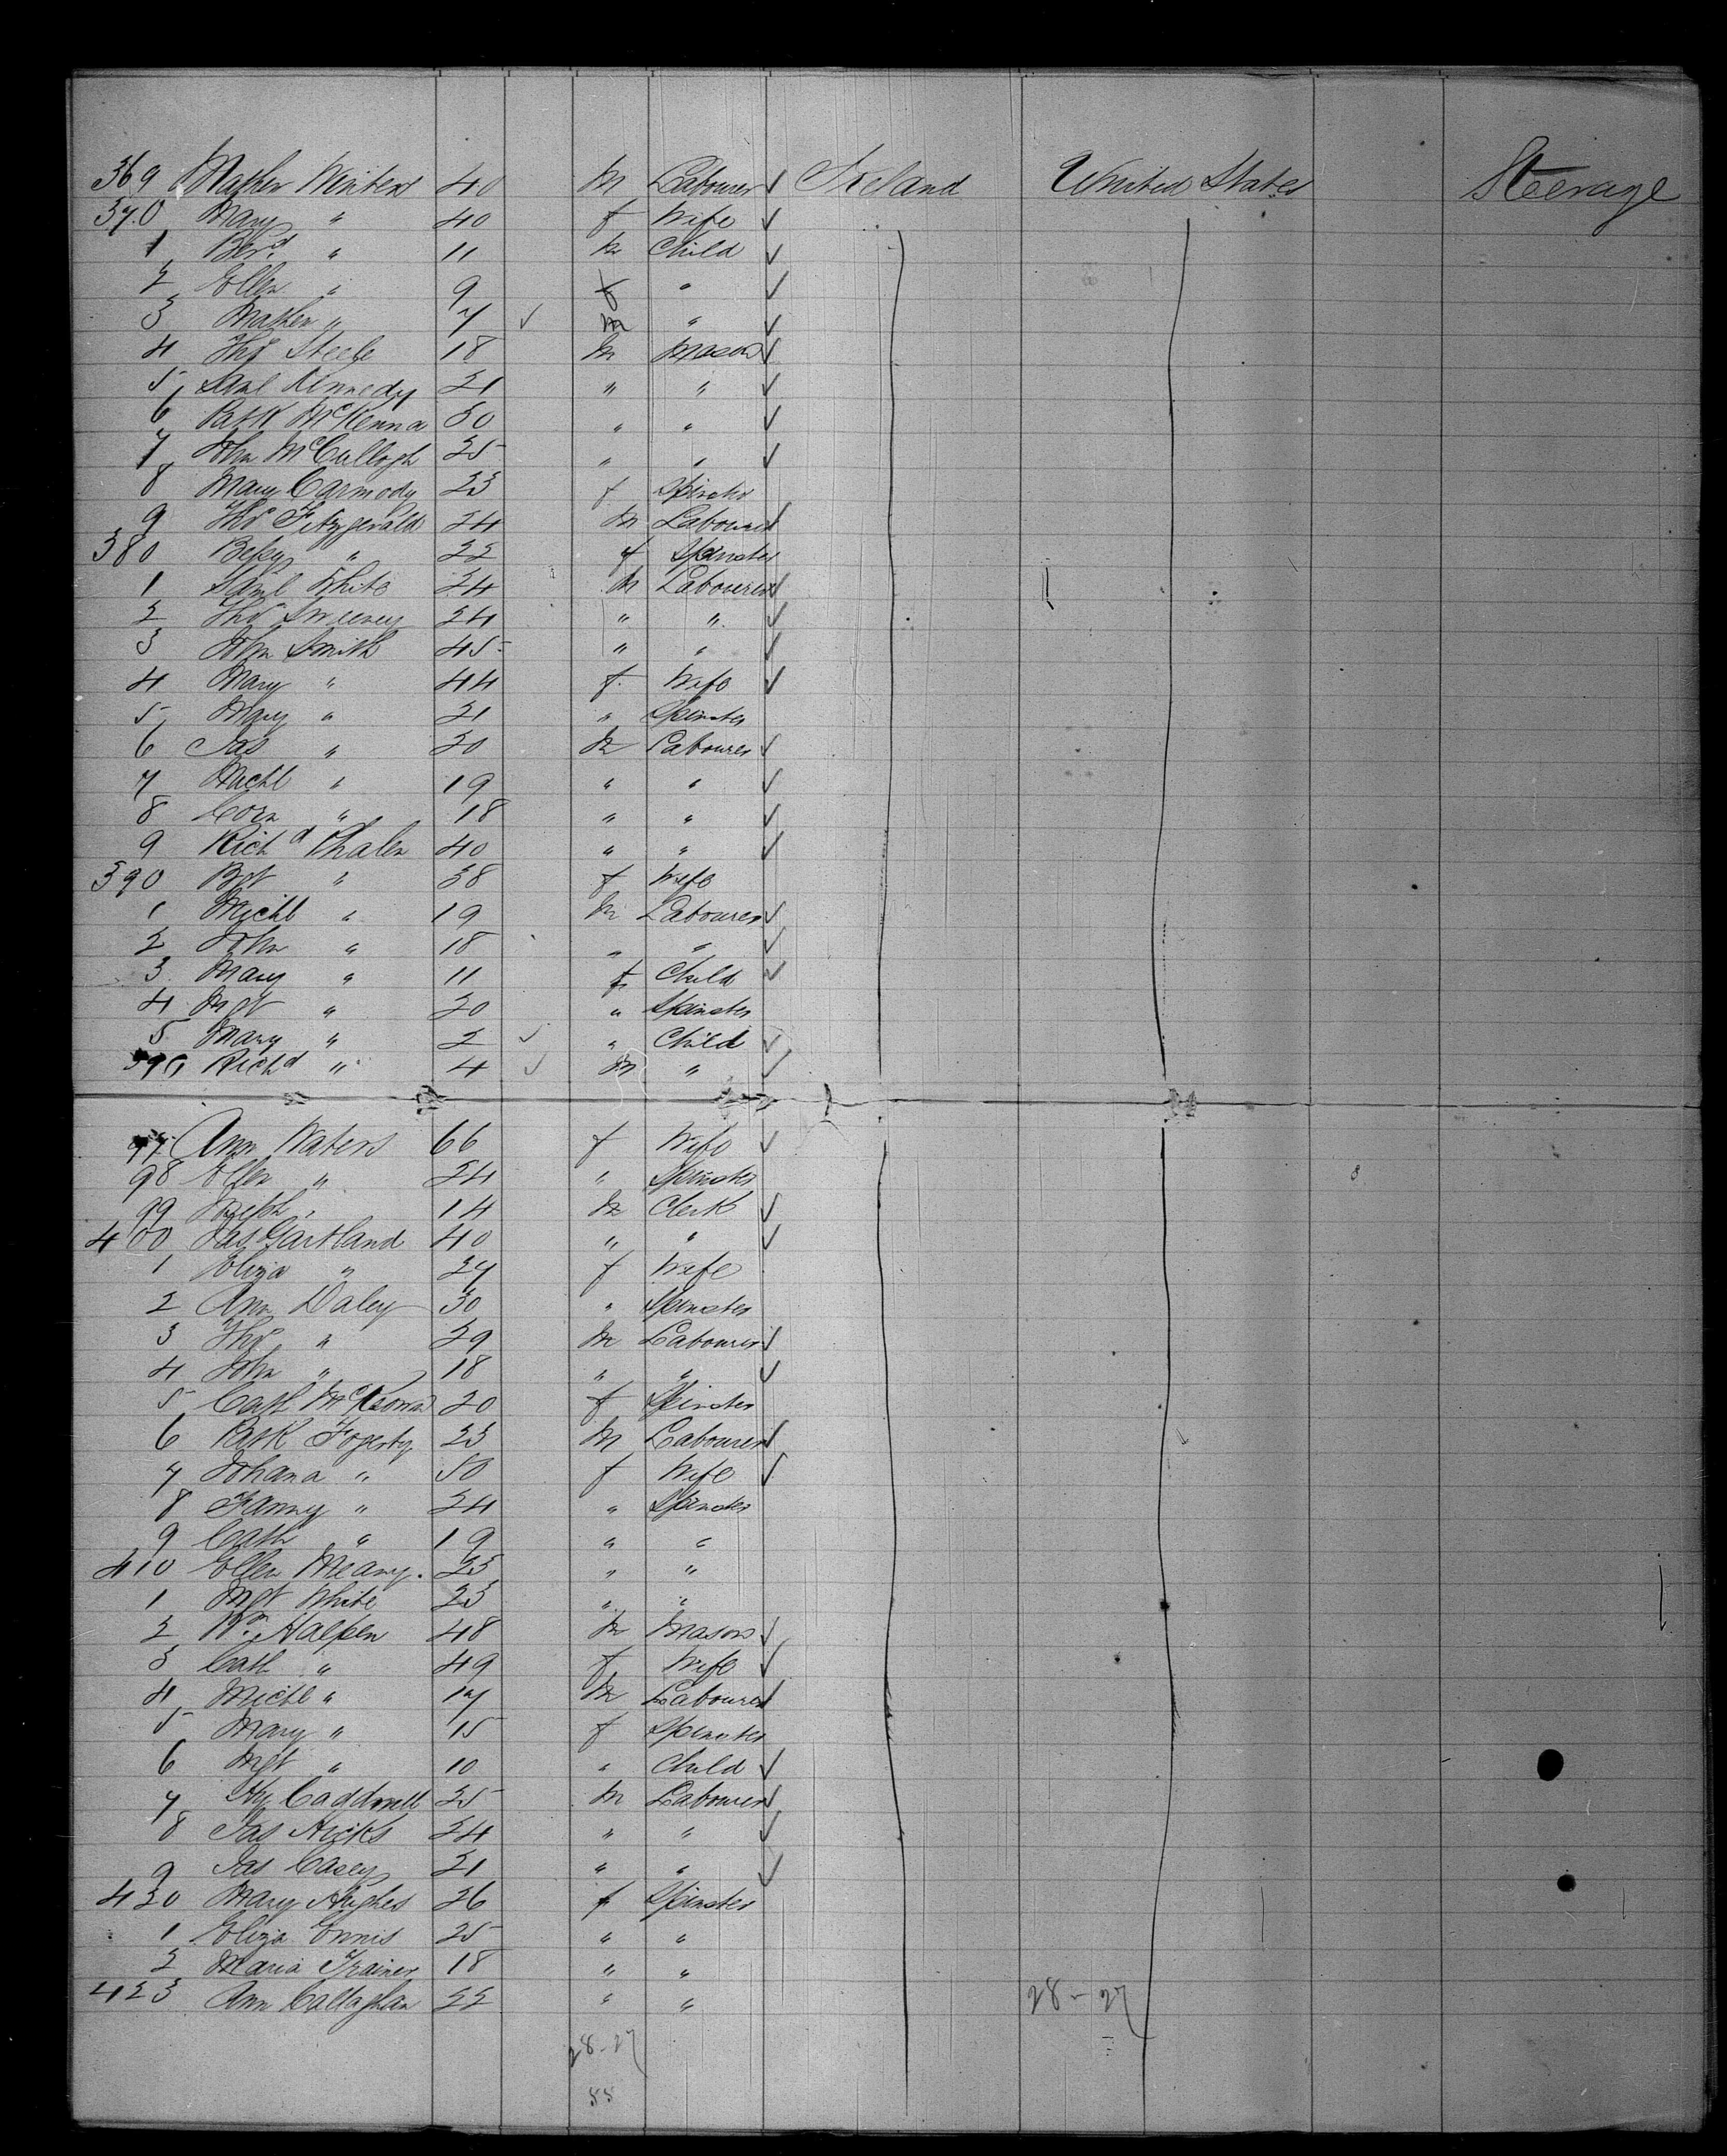 369 Mathw Winters 40 M Labourer ✓ Ireland United States Steerage
370 Mary " 40 f Wife ✓
1 Berd " 11 M Child ✓
2 Ellen " 9 f " ✓
3 Mathew " 7 ✓ M " ✓
4 Thos Steele 18 M Mason ✓
5 Saml Kennedy 21 " " ✓
6 Patk McKenna 30 " " ✓
7 John McCullogh 25 " " ✓
8 Mary Carmody 23 f Spinster
9 Thos Fitzgerald 24 M Labourer ✓
380 Bessy " 22 f Spinster
1 Saml White 24 M Labourer ✓
2 Thos Sweeney 24 " " ✓
3 John Smith 45 " " ✓
4 Mary " 44 f Wife ✓
5 Mary " 21 " Spinster
6 Jas " 20 M Labourer ✓
7 Michl " 19 " " ✓
8 Corn " 18 " " ✓
9 Richd Phalen 40 " " ✓
390 Bgt " 38 f Wife
1 Michl " 19 M Labourer ✓
2 John " 18 " " ✓
3 Mary " 11 f Child ✓
4 Mgt " 20 " Spinster
5 Mary " 2 ✓ " Child ✓
396 Richd " 4 ✓ M " ✓
97 Ann Waters 66 f Wife ✓
98 Ellen " 24 " Spinster
99 Joseph " 14 M Clerk ✓
400 Jas Gartland 40 " " ✓
1 Eliza " 27 f Wife
2 Ann Daley 30 " Spinster
3 Thos " 29 M Labourer ✓
4 John " 18 " " ✓
5 Cath 20 f Spinster
6 Patk Fogerty 23 M Labourer ✓
7 Johana " 50 f Wife ✓
8 Fanny " 24 " Spinster
9 Cath " 19 " "
410 Ellen Meany 25 " "
1 Mgt White 23 " "
2 Wm Halpen 48 M Mason ✓
3 Cath " 49 f Wife ✓
4 Michl " 17 M Labourer ✓
5 Mary " 15 f Spinster
6 Mgt " 10 " Child ✓
7 Hy 25 M Labourer ✓
8 Jas Hicks 24 " " ✓
9 Jas Casey 21 " " ✓
420 Mary Hughes 26 f Spinster
1 Eliza Ennis 25 " "
2 Maria Trainer 18 " "
423 Ann Callaghan 22 " " 28-27
28-27
55